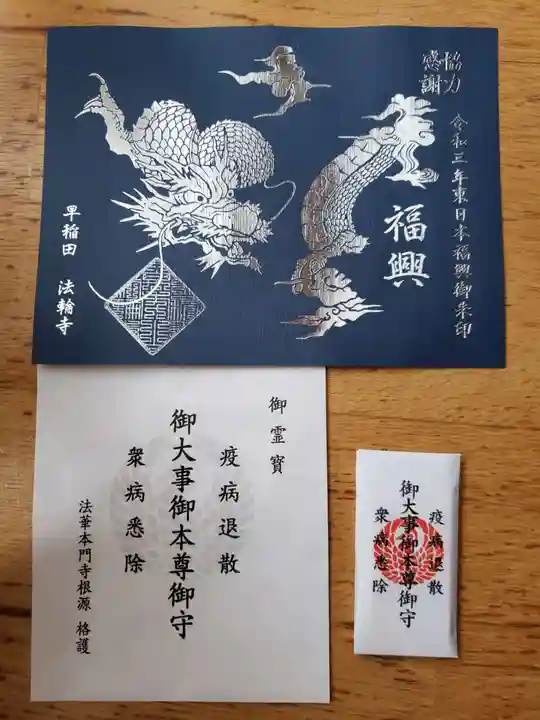 協力
感謝
令和三年東日本福興御朱印
福興
早稲田 法輪寺
御霊寶
疫病退散
御大事御本尊御守
衆病悉除
法華本門寺根源 格護
疫病退散
御大事御本尊御守
衆病悉除